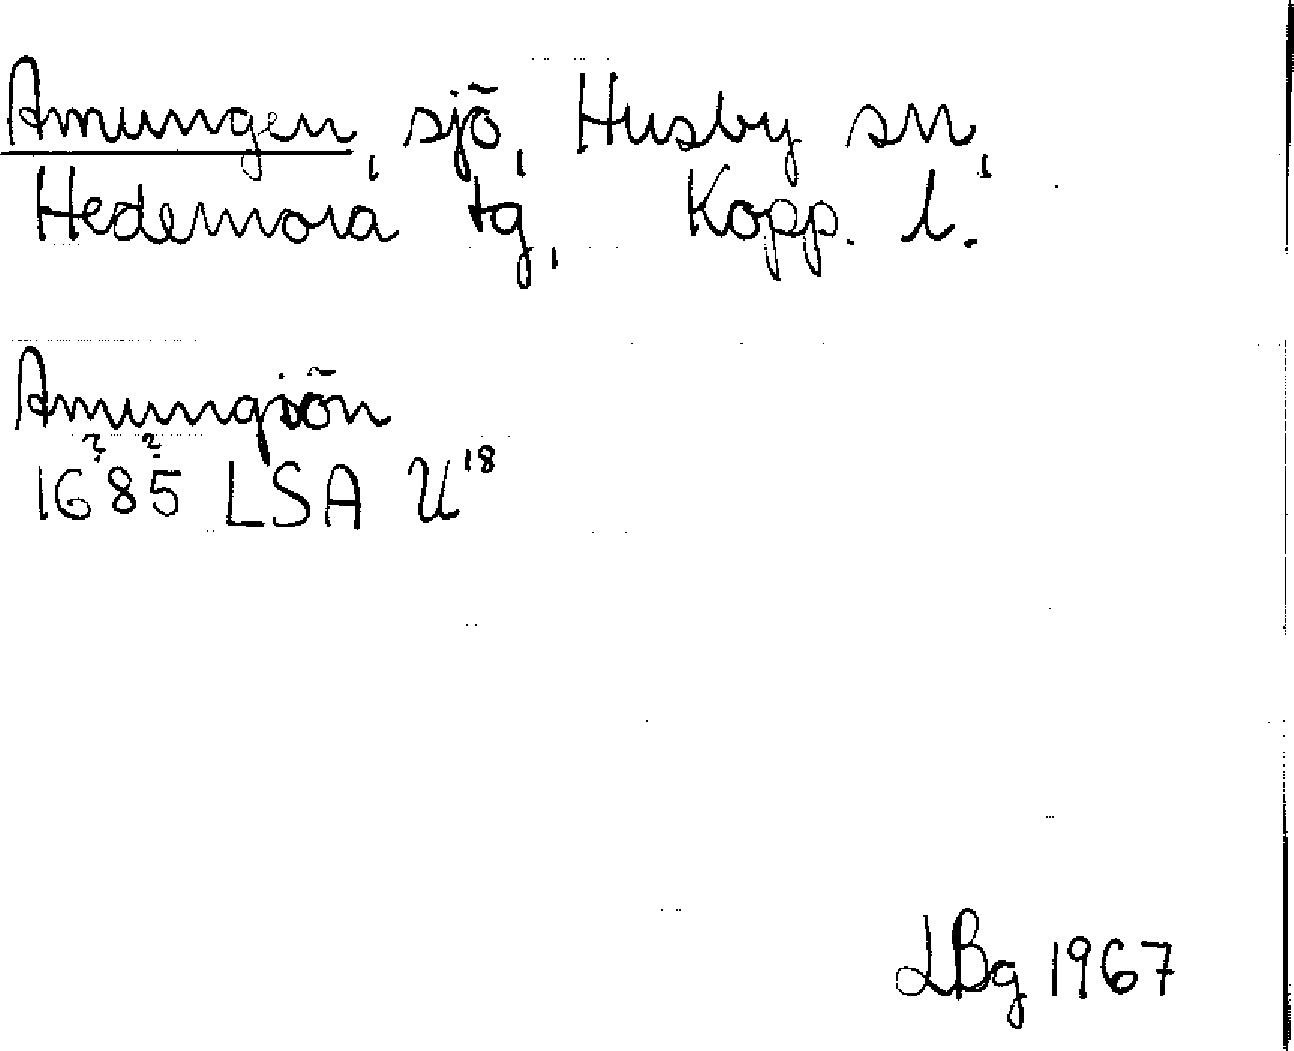 Amungen, sjö, Husby sn,
Hedemora tg, Kopp. l.
Amungsjön
? ?
1685 LSA U18
LBg 1967